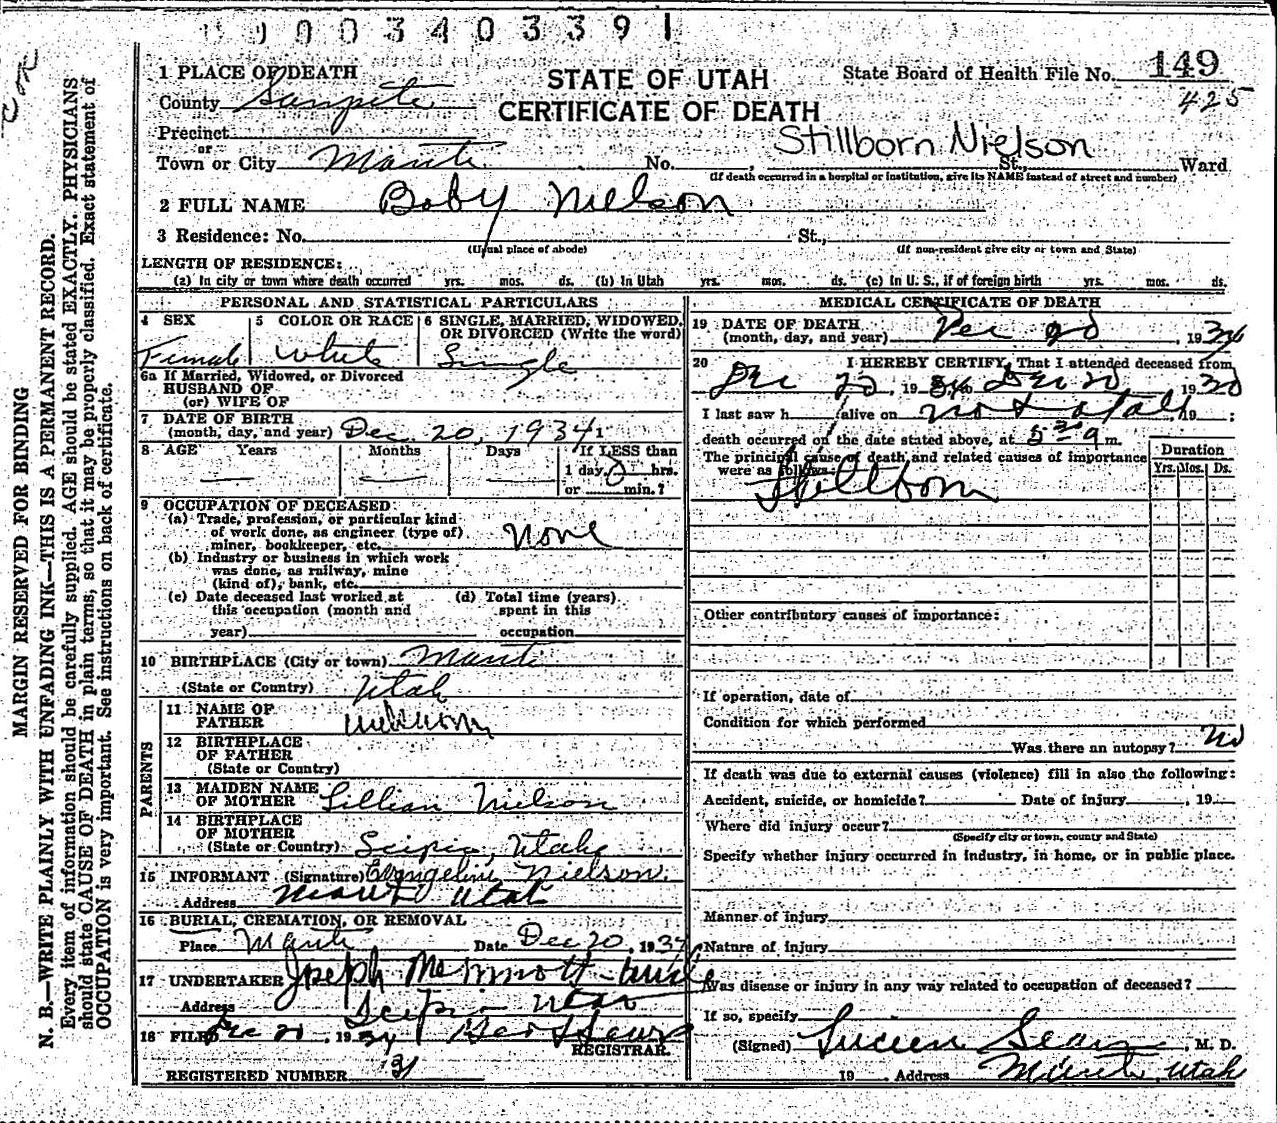 0003403391
1 PLACE OF DEATH
STATE OF UTAH
CERTIFICATE OF DEATH
State Board of Health File No. 149
425
County Sanpete
Precinct
or
Town or City Manti No. St., Ward
Stillborn Nielson
(If death occurred in a hospital or institution, give its NAME instead of street and number)
2 FULL NAME Baby Nielson
3 Residence: No. St.,
(Usual place of abode) (If non-resident give city or town and State)
LENGTH OF RESIDENCE:
(a) In city or town where death occurred yrs. mos. ds. (b) In Utah yrs. mos. ds. (c) In U. S., if of foreign birth yrs. mos. ds.
PERSONAL AND STATISTICAL PARTICULARS
4 SEX Female
5 COLOR OR RACE White
6 SINGLE, MARRIED, WIDOWED, OR DIVORCED (Write the word) Single
6a If Married, Widowed, or Divorced
HUSBAND OF
(or) WIFE OF
7 DATE OF BIRTH
(month, day, and year) Dec. 20, 1934
8 AGE Years Months Days If LESS than
1 day, 0 hrs.
or min.?
9 OCCUPATION OF DECEASED:
(a) Trade, profession, or particular kind
of work done, as engineer (type of)
miner, bookkeeper, etc. None
(b) Industry or business in which work
was done, as railway, mine
(kind of), bank, etc.
(c) Date deceased last worked at
this occupation (month and
year)
(d) Total time (years)
spent in this
occupation
10 BIRTHPLACE (City or town) Manti
(State or Country) Utah
PARENTS
11 NAME OF
FATHER unknown
12 BIRTHPLACE
OF FATHER
(State or Country)
13 MAIDEN NAME
OF MOTHER Lillian Nielson
14 BIRTHPLACE
OF MOTHER
(State or Country) Scipio, Utah
15 INFORMANT (Signature) Evangeline Nielson
Address Manti Utah
16 BURIAL, CREMATION, OR REMOVAL
Place Manti Date Dec 20, 1934
17 UNDERTAKER Joseph Memmott
Address Scipio Utah
18 FILED Dec 20, 1934
REGISTRAR.
REGISTERED NUMBER 31
MEDICAL CERTIFICATE OF DEATH
19 DATE OF DEATH
(month, day, and year) Dec 20, 1934
20 I HEREBY CERTIFY, That I attended deceased from
Dec 19 to Dec 20 19
I last saw h alive on not at all, 19 ;
death occurred on the date stated above, at 5 30 a m.
The principal cause of death and related causes of importance
were as follows:
Stillborn
Duration
Yrs. Mos. Ds.
Other contributory causes of importance:
If operation, date of
Condition for which performed
Was there an autopsy? No
If death was due to external causes (violence) fill in also the following:
Accident, suicide, or homicide? Date of injury , 19
Where did injury occur?
(Specify city or town, county and State)
Specify whether injury occurred in industry, in home, or in public place.
Manner of injury
Nature of injury
Was disease or injury in any way related to occupation of deceased?
If so, specify
(Signed) Lucien Sears, M. D.
19 Address Manti, Utah
MARGIN RESERVED FOR BINDING
N. B.—WRITE PLAINLY WITH UNFADING INK—THIS IS A PERMANENT RECORD.
Every item of information should be carefully supplied. AGE should be stated EXACTLY. PHYSICIANS
should state CAUSE OF DEATH in plain terms, so that it may be properly classified. Exact statement of
OCCUPATION is very important. See instructions on back of certificate.